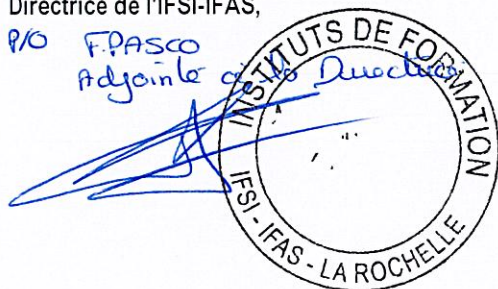 Directrice de l'IFSI-IFAS,
P/O F.PASCO
Adjointe à la Directrice
INSTITUTS DE FORMATION
IFSI - IFAS - LA ROCHELLE